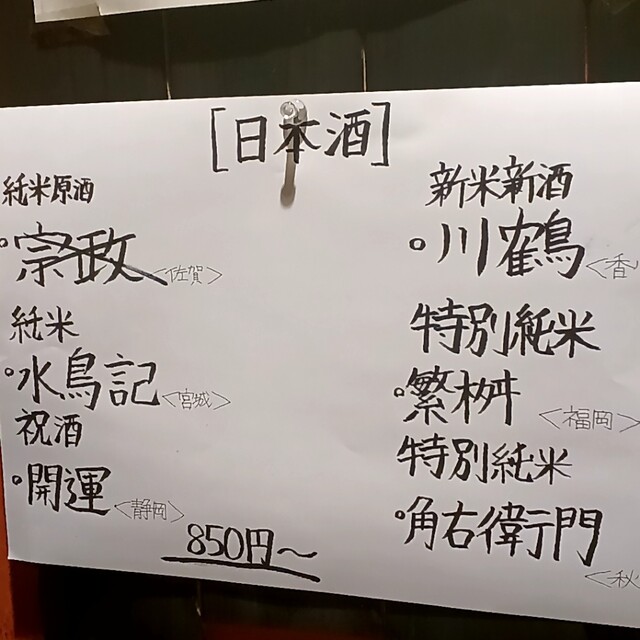 [日本酒]
新米新酒
。川鶴 <香
特別純米
。繁桝 <福岡>
特別純米
。角右衛門
<秋
純米原酒
。宗政 <佐賀>
純米
。水鳥記 <宮城>
祝酒
。開運 <静岡>
850円〜